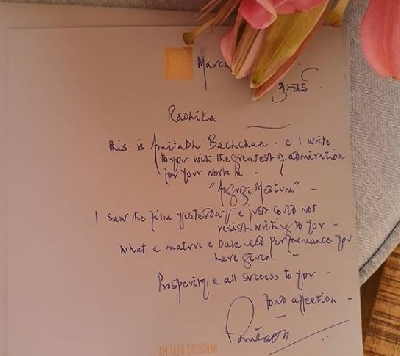 March
मुंबई
Radhika
This is Amitabh Bachchan. & I write
to you with the greatest of admiration
for your work in
"Angrezi Medium" -
I saw the film yesterday, & just could not
resist writing to you -
what a mature & balanced performance you
have given -
Prosperity & all success to you -
fond affection -
AMITABH BACHCHAN